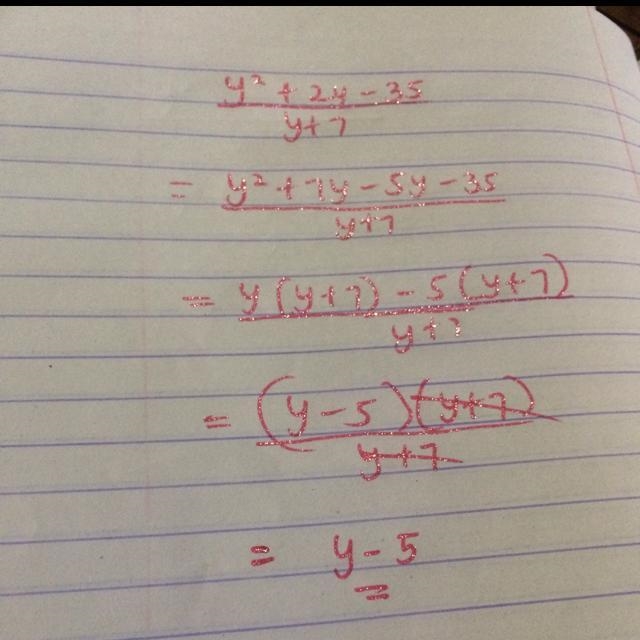 y² + 2y - 35
y+7
= y² + 7y - 5y - 35
y+7
= y(y+7) - 5(y+7)
y+7
= (y-5)(y+7)
y+7
= y - 5